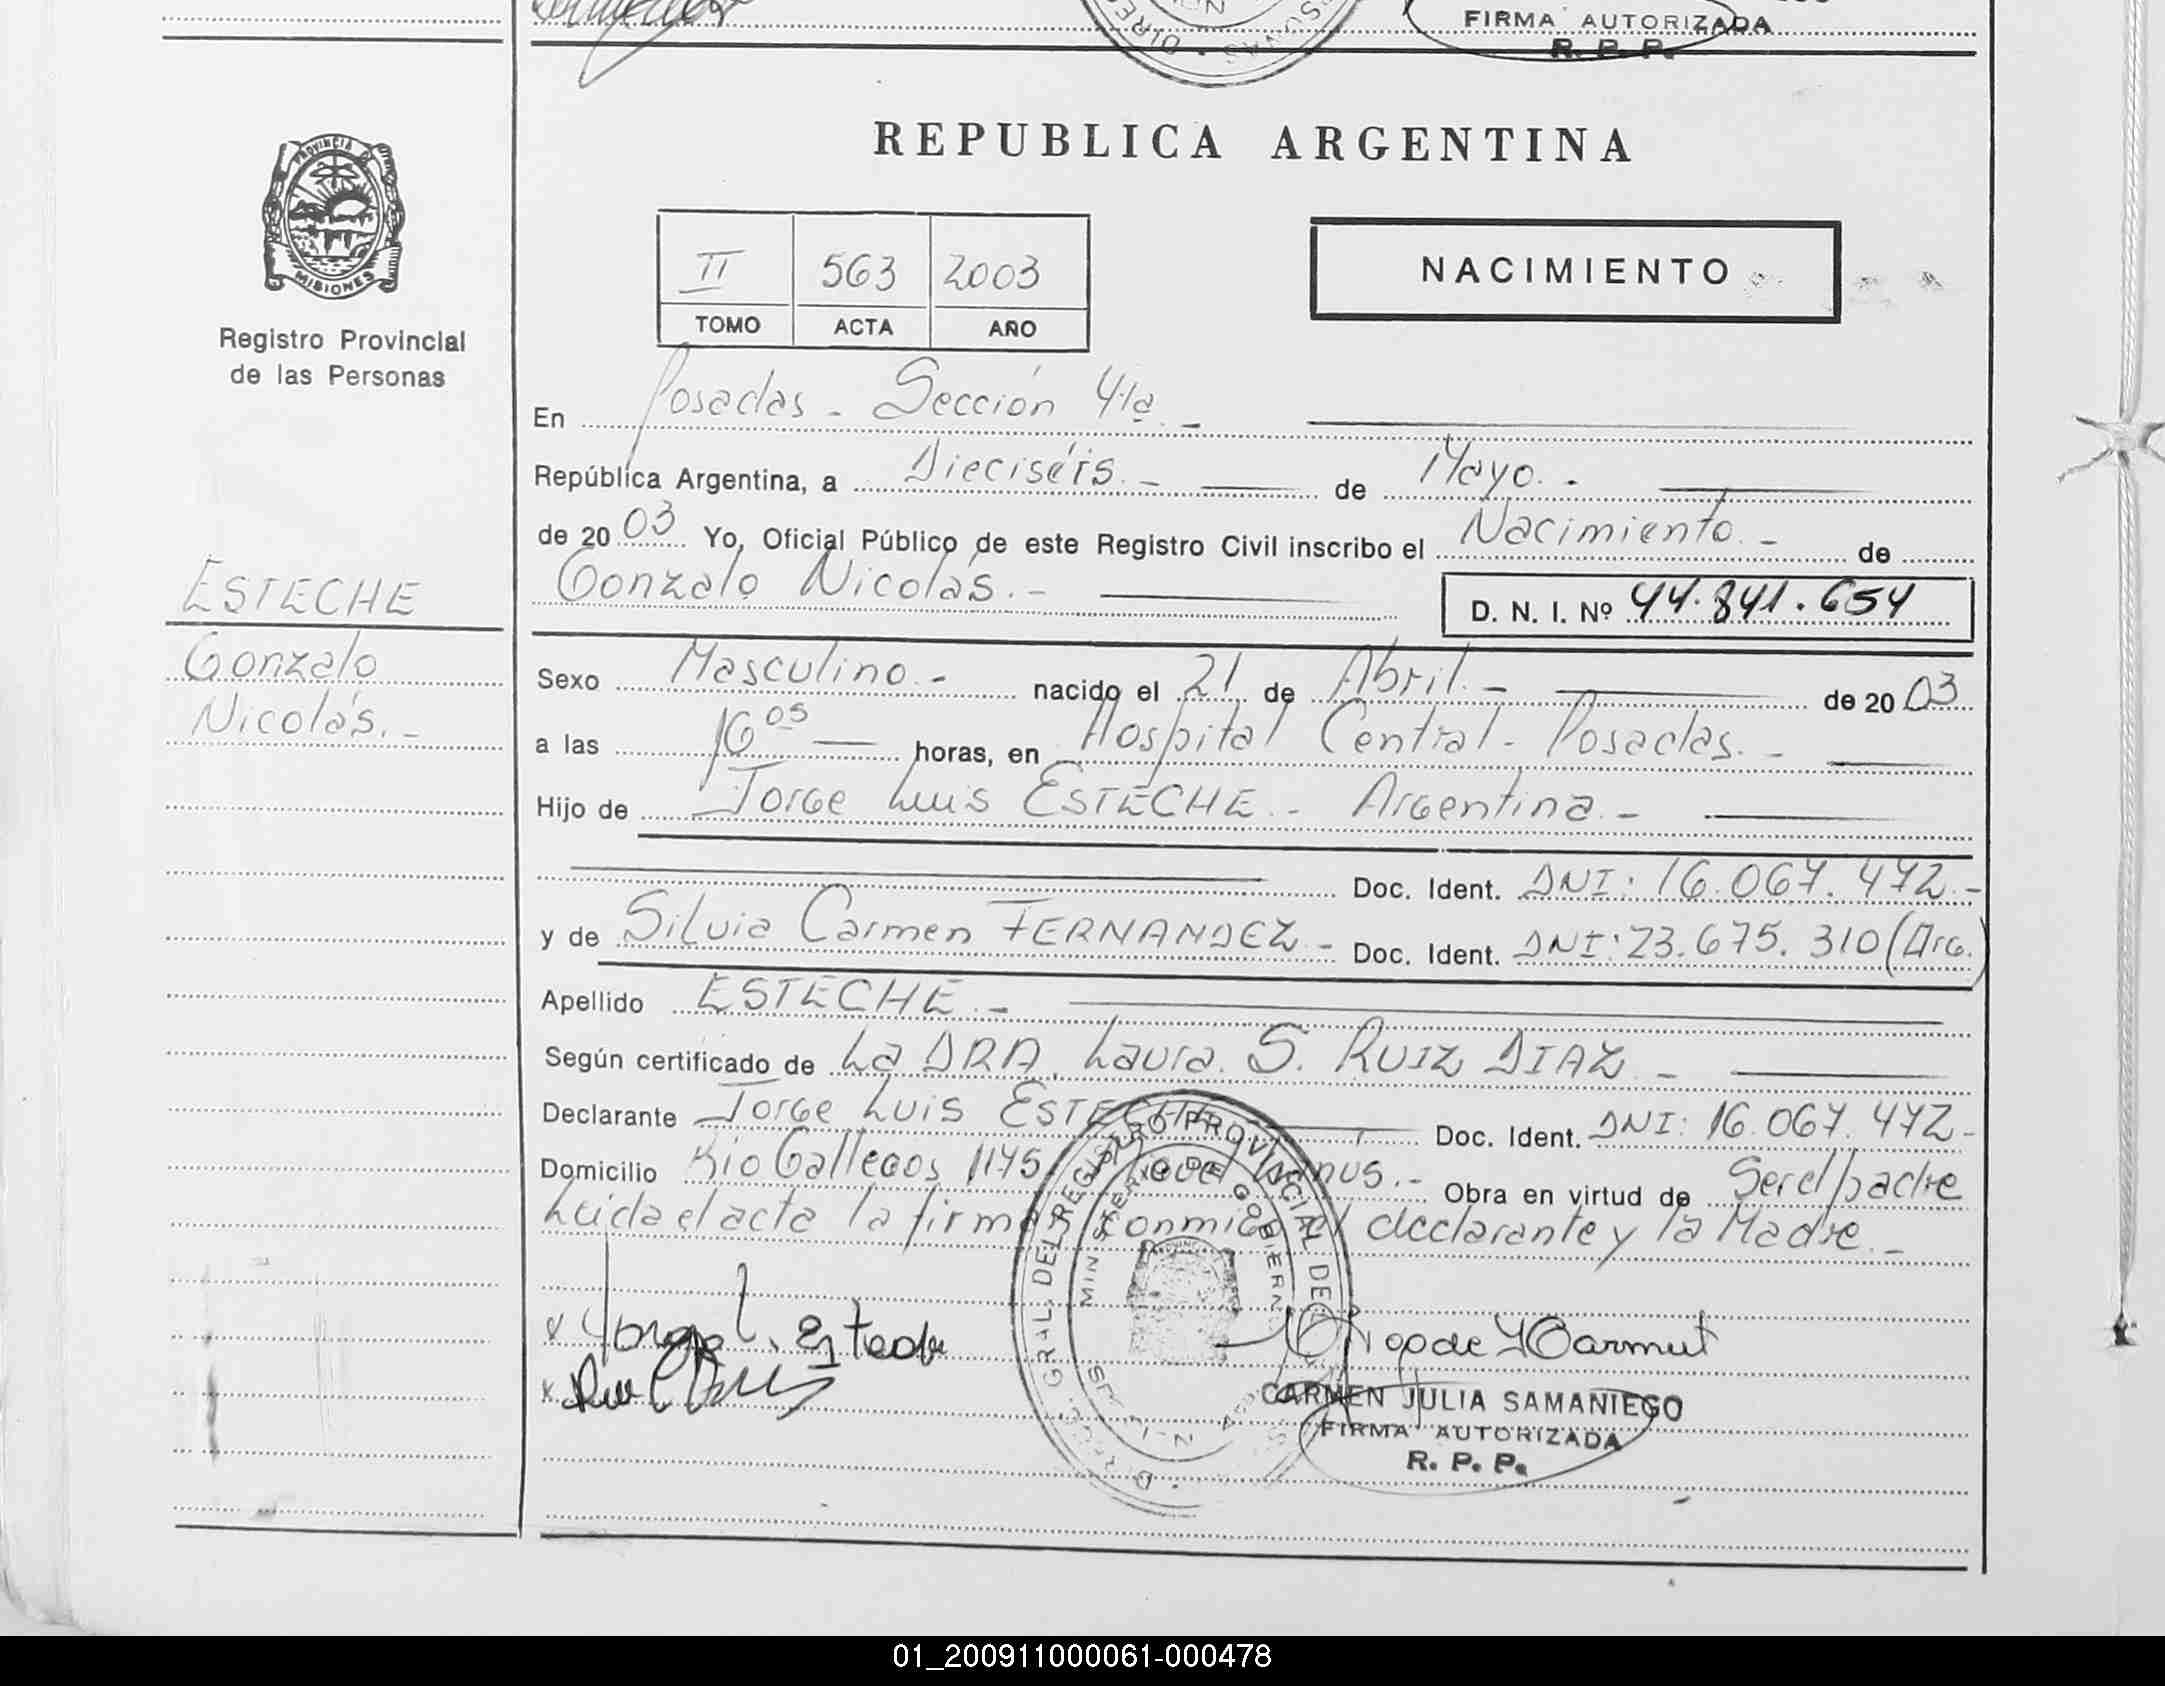 FIRMA AUTORIZADA
R. P. P.
REPUBLICA ARGENTINA
PROVINCIA DE
MISIONES
Registro Provincial
de las Personas
II 563 2003
TOMO ACTA AÑO
NACIMIENTO
En Posadas - Sección 4ta. -
República Argentina, a Dieciséis. - de Mayo. -
de 20 03 Yo, Oficial Público de este Registro Civil inscribo el Nacimiento. - de
Gonzalo Nicolás. -
D. N. I. Nº 44.841.654
ESTECHE
Gonzalo
Nicolás. -
Sexo Masculino. - nacido el 21 de Abril. - de 20 03
a las 16 05 horas, en Hospital Central - Posadas. -
Hijo de Jorge Luis ESTECHE. - Argentina. -
Doc. Ident. DNI: 16.067.472. -
y de Silvia Carmen FERNANDEZ - Doc. Ident. DNI: 23.675.310 (Arg.)
Apellido ESTECHE. -
Según certificado de La DRA. Laura. S. RUIZ DIAZ. -
Declarante Jorge Luis ESTECHE Doc. Ident. DNI: 16.067.472 -
Domicilio Rio Gallegos 1175 Miguel Lanus. - Obra en virtud de Ser el padre
Leida el acta la firman conmigo el declarante y la Madre. -
DIRECC. GRAL. DEL REGISTRO PROVINCIAL DE
MINISTERIO DE GOBIERNO
CARMEN JULIA SAMANIEGO
FIRMA AUTORIZADA
R. P. P.
01_200911000061-000478